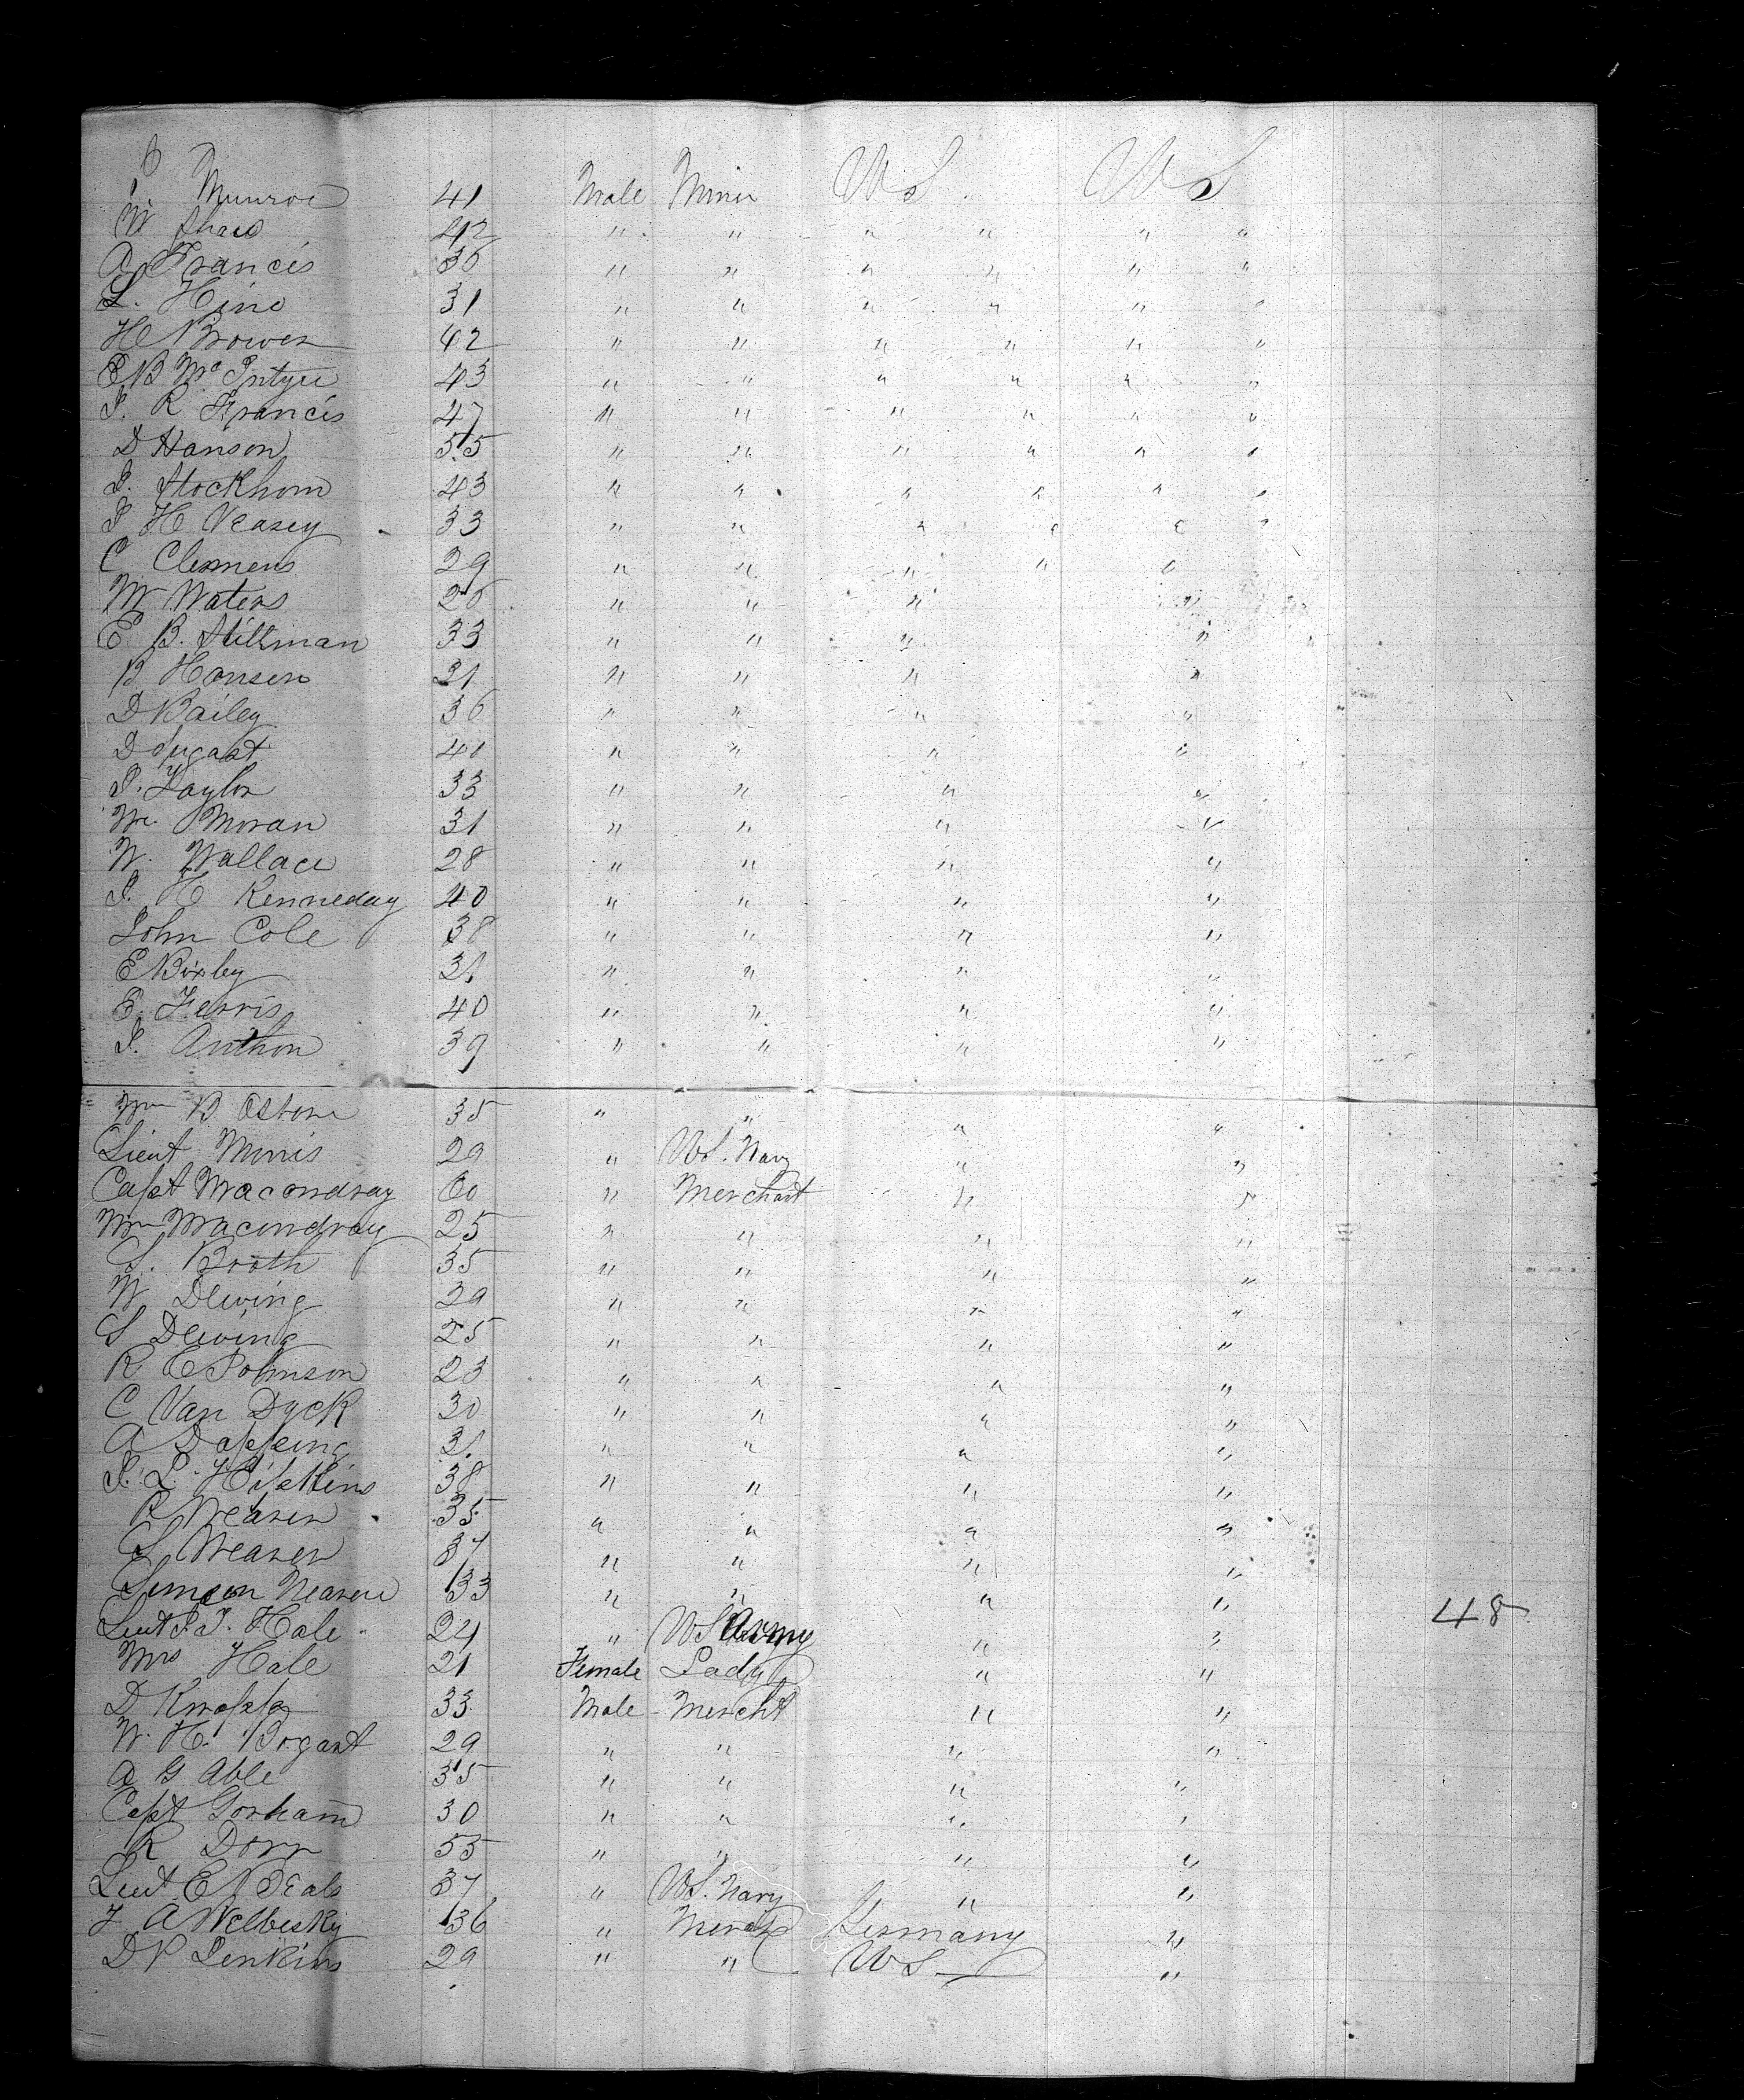 Munroe 41 Male Miner US US
W Shaw 42 " " " " " "
A Francis 36 " " " " " "
L. Hine 31 " " " " " "
H Brower 42 " " " " " "
E B McIntyre 43 " " " " " "
J. R Francis 47 " " " " " "
D Hanson 55 " " " " " "
J. Stockhom 43 " " " " " "
J H Veasey 33 " " " " " "
C Clemens 29 " " " " "
W Waters 26 " " " "
E B. Stillman 33 " " " "
B Hansen 31 " " " "
D Bailey 36 " " " "
D 40 " " " "
J. Taylor 33 " " " "
Wm. Moran 31 " " " "
W. Wallace 28 " " " "
J. H Kenneday 40 " " " "
John Cole 38 " " " "
E Bixley 31 " " " "
E. Ferris 40 " " " "
J. Anthon 39 " " " "
Wm B Osborn 35 " " " "
Lieut Morris 29 " US. Navy " "
Capt Macondray 60 " Merchant " "
Wm Macondray 25 " " " "
S. Booth 35 " " " "
W Dewing 39 " " " "
S Dewing 25 " " " "
R E Johnson 23 " " " "
C Van Dyck 30 " " " "
A Dopping 31. " " " "
J. L. Hipkins 38 " " " "
R Weaver 35 " " " "
S Weaver 37 " " " "
Simeon Weaver 33 " " " "
Lieut J. T. Hale 24 " US Army " " 48
Mrs Hale 21 Female Lady " "
D Knapp 33 Male Mercht " "
W. H. Bogart 29 " " " "
A G Able 35 " " " "
Capt Gorham 30 " " " "
R Dorr 55 " " " "
Lieut E Beals 37 " US. Navy " "
F A Welbisky 36 " Mercht Germany "
D P Jenkins 29 " " US "